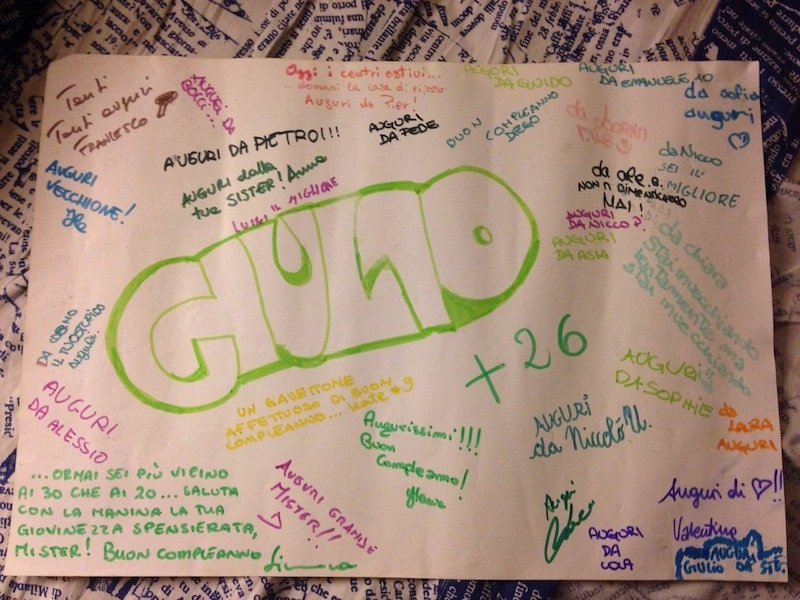 Tanti
Tanti auguri
FRANCESCO
AUGURI DA
BOCCI...
Oggi i centri estivi...
...domani la casa di riposo
Auguri da Pier!
AUGURI
DA GUIDO
AUGURI
DA EMANUELE 10
da sofia
auguri
AUGURI DA PIETRO!!!
AUGURI
DA FEDE
BUON COMPLEANNO
DIEGO
da Nicco
SEI IL
MIGLIORE
AUGURI
VECCHIONE!
AUGURI dalla
tua SISTER! Anna
LUIGI IL MIGLIORE
da ORE.B.
NON TI DIMENTICHERÒ
MAI!
AUGURI
DA NICCO
AUGURI
DA ASIA
da chiara
Stai invecchiando
lentamente ma
stai invecchiando
GIULIO
+26
IL TUO STUPIDO
auguri.
UN GAVETTONE
AFFETTUOSO DI BUON
COMPLEANNO...
AUGURI
DA SOPHIE
AUGURI
DA ALESSIO
Augurissimi!!!
Buon
Compleanno!
AUGURI
da Niccolò U.
da
LAURA
AUGURI
...ORMAI SEI PIÙ VICINO
AI 30 CHE AI 20... SALUTA
CON LA MANINA LA TUA
GIOVINEZZA SPENSIERATA,
MISTER! BUON COMPLEANNO
AUGURI GRANDE
MISTER!!
AUGURI
DA
LOLA
Auguri di ♡!!
Valentina
AUGURI
GIULIO DA STE.